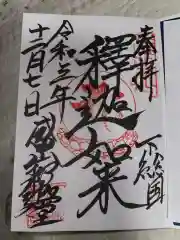 奉拝
下総国
釋迦如来
令和五年
十二月七日